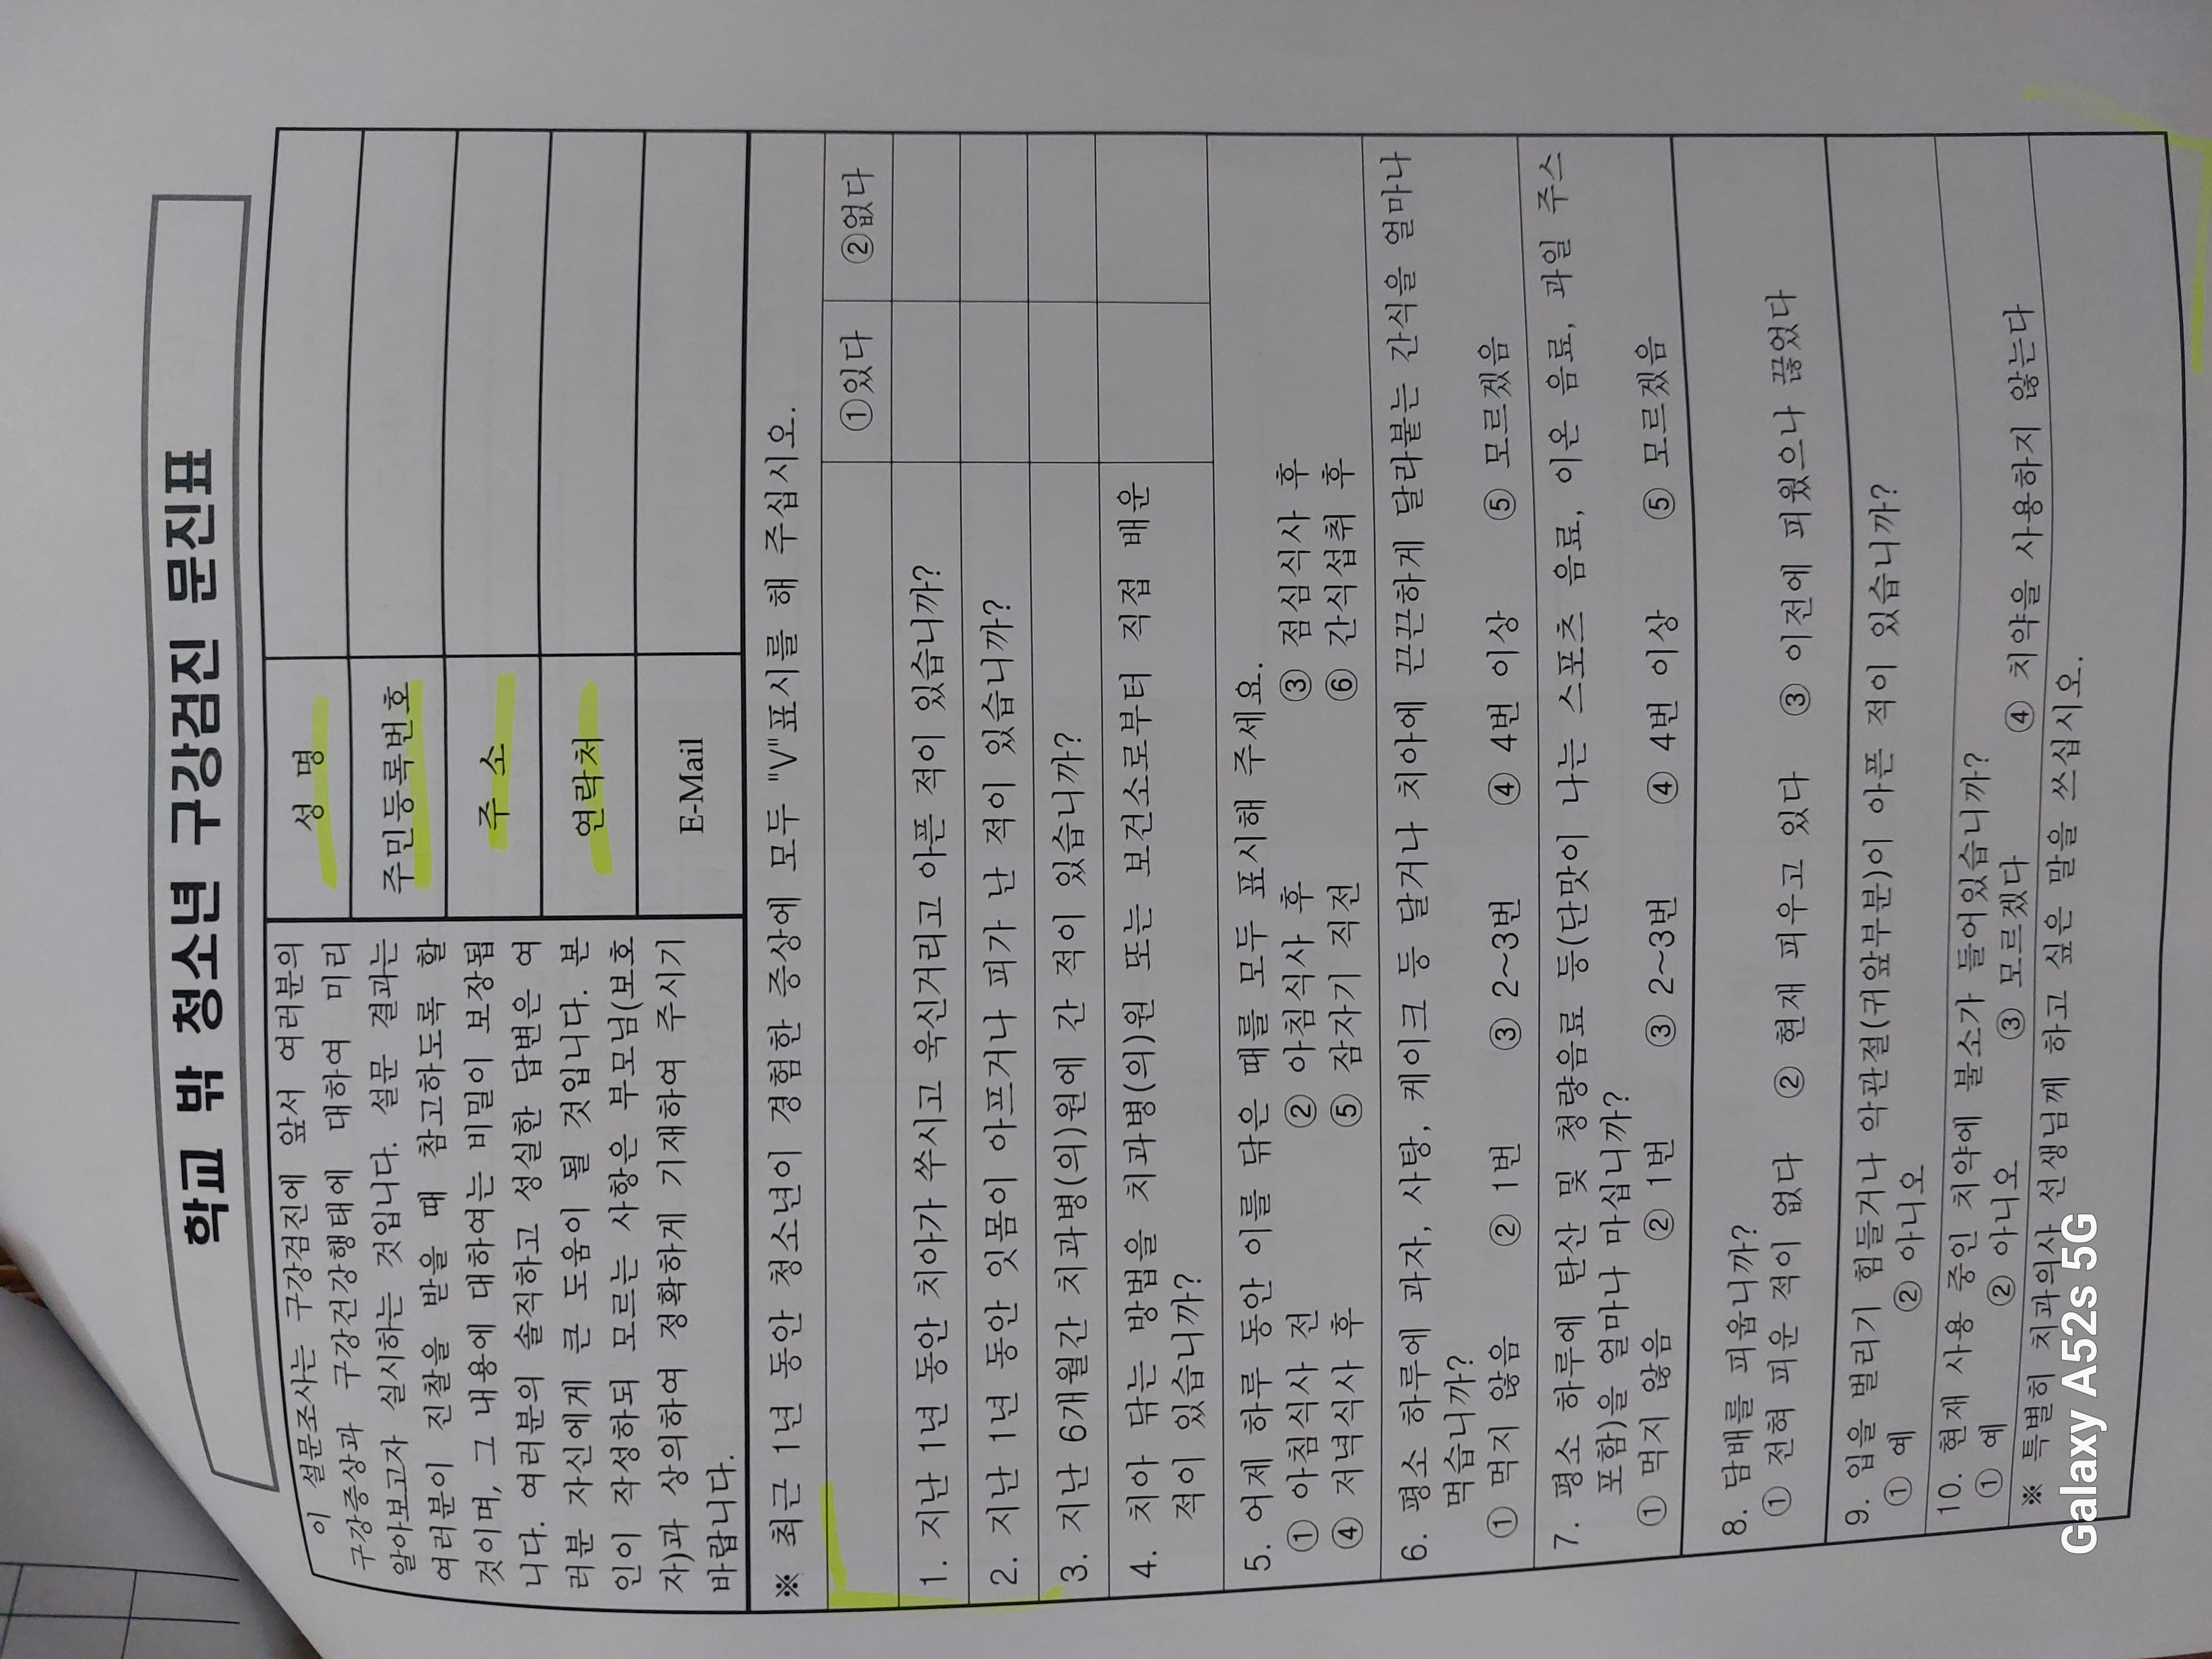 학교 밖 청소년 구강검진 문진표
이 설문조사는 구강검진에 앞서 여러분의
구강증상과 구강건강행태에 대하여 미리
알아보고자 실시하는 것입니다. 설문 결과는
여러분이 진찰을 받을 때 참고하도록 할
것이며, 그 내용에 대하여는 비밀이 보장됩
니다. 여러분의 솔직하고 성실한 답변은 여
러분 자신에게 큰 도움이 될 것입니다. 본
인이 작성하되 모르는 사항은 부모님(보호
자)과 상의하여 정확하게 기재하여 주시기
바랍니다.
성 명
주민등록번호
주 소
연락처
E-Mail
※ 최근 1년 동안 청소년이 경험한 증상에 모두 "V"표시를 해 주십시오.
①있다 ②없다
1. 지난 1년 동안 치아가 쑤시고 욱신거리고 아픈 적이 있습니까?
2. 지난 1년 동안 잇몸이 아프거나 피가 난 적이 있습니까?
3. 지난 6개월간 치과병(의)원에 간 적이 있습니까?
4. 치아 닦는 방법을 치과병(의)원 또는 보건소로부터 직접 배운
적이 있습니까?
5. 어제 하루 동안 이를 닦은 때를 모두 표시해 주세요.
① 아침식사 전 ② 아침식사 후 ③ 점심식사 후
④ 저녁식사 후 ⑤ 잠자기 직전 ⑥ 간식섭취 후
6. 평소 하루에 과자, 사탕, 케이크 등 달거나 치아에 끈끈하게 달라붙는 간식을 얼마나
먹습니까?
① 먹지 않음 ② 1번 ③ 2~3번 ④ 4번 이상 ⑤ 모르겠음
7. 평소 하루에 탄산 및 청량음료 등(단맛이 나는 스포츠 음료, 이온 음료, 과일 주스
포함)을 얼마나 마십니까?
① 먹지 않음 ② 1번 ③ 2~3번 ④ 4번 이상 ⑤ 모르겠음
8. 담배를 피웁니까?
① 전혀 피운 적이 없다 ② 현재 피우고 있다 ③ 이전에 피웠으나 끊었다
9. 입을 벌리기 힘들거나 악관절(귀앞부분)이 아픈 적이 있습니까?
① 예 ② 아니오
10. 현재 사용 중인 치약에 불소가 들어있습니까?
① 예 ② 아니오 ③ 모르겠다 ④ 치약을 사용하지 않는다
※ 특별히 치과의사 선생님께 하고 싶은 말을 쓰십시오.
Galaxy A52s 5G